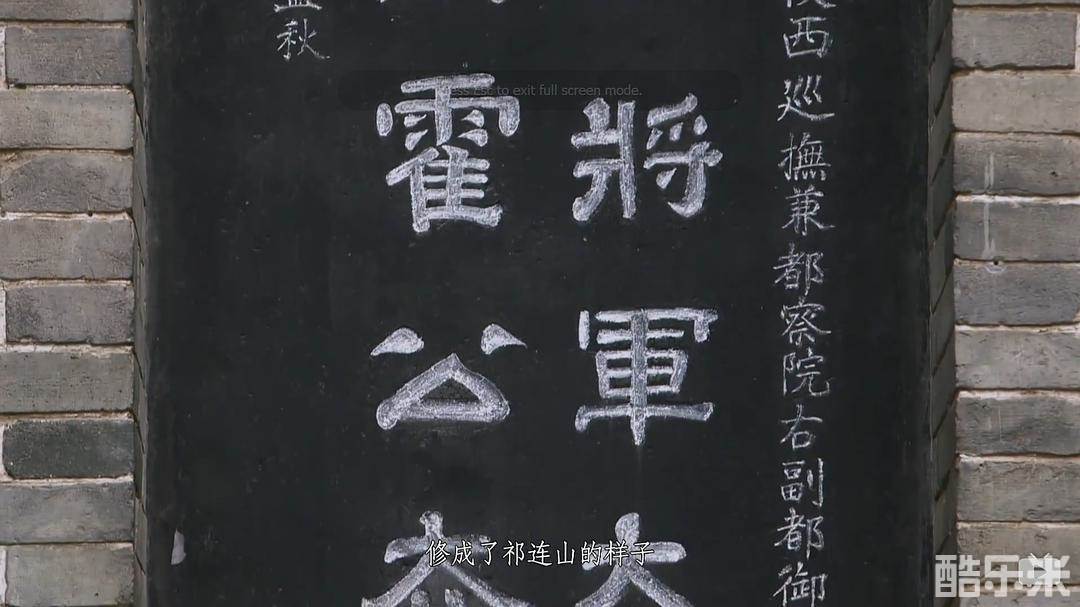 西巡撫兼都察院右副都御
將軍大
霍公
秋
Press Esc to exit full screen mode.
修成了祁连山的样子
酷乐米